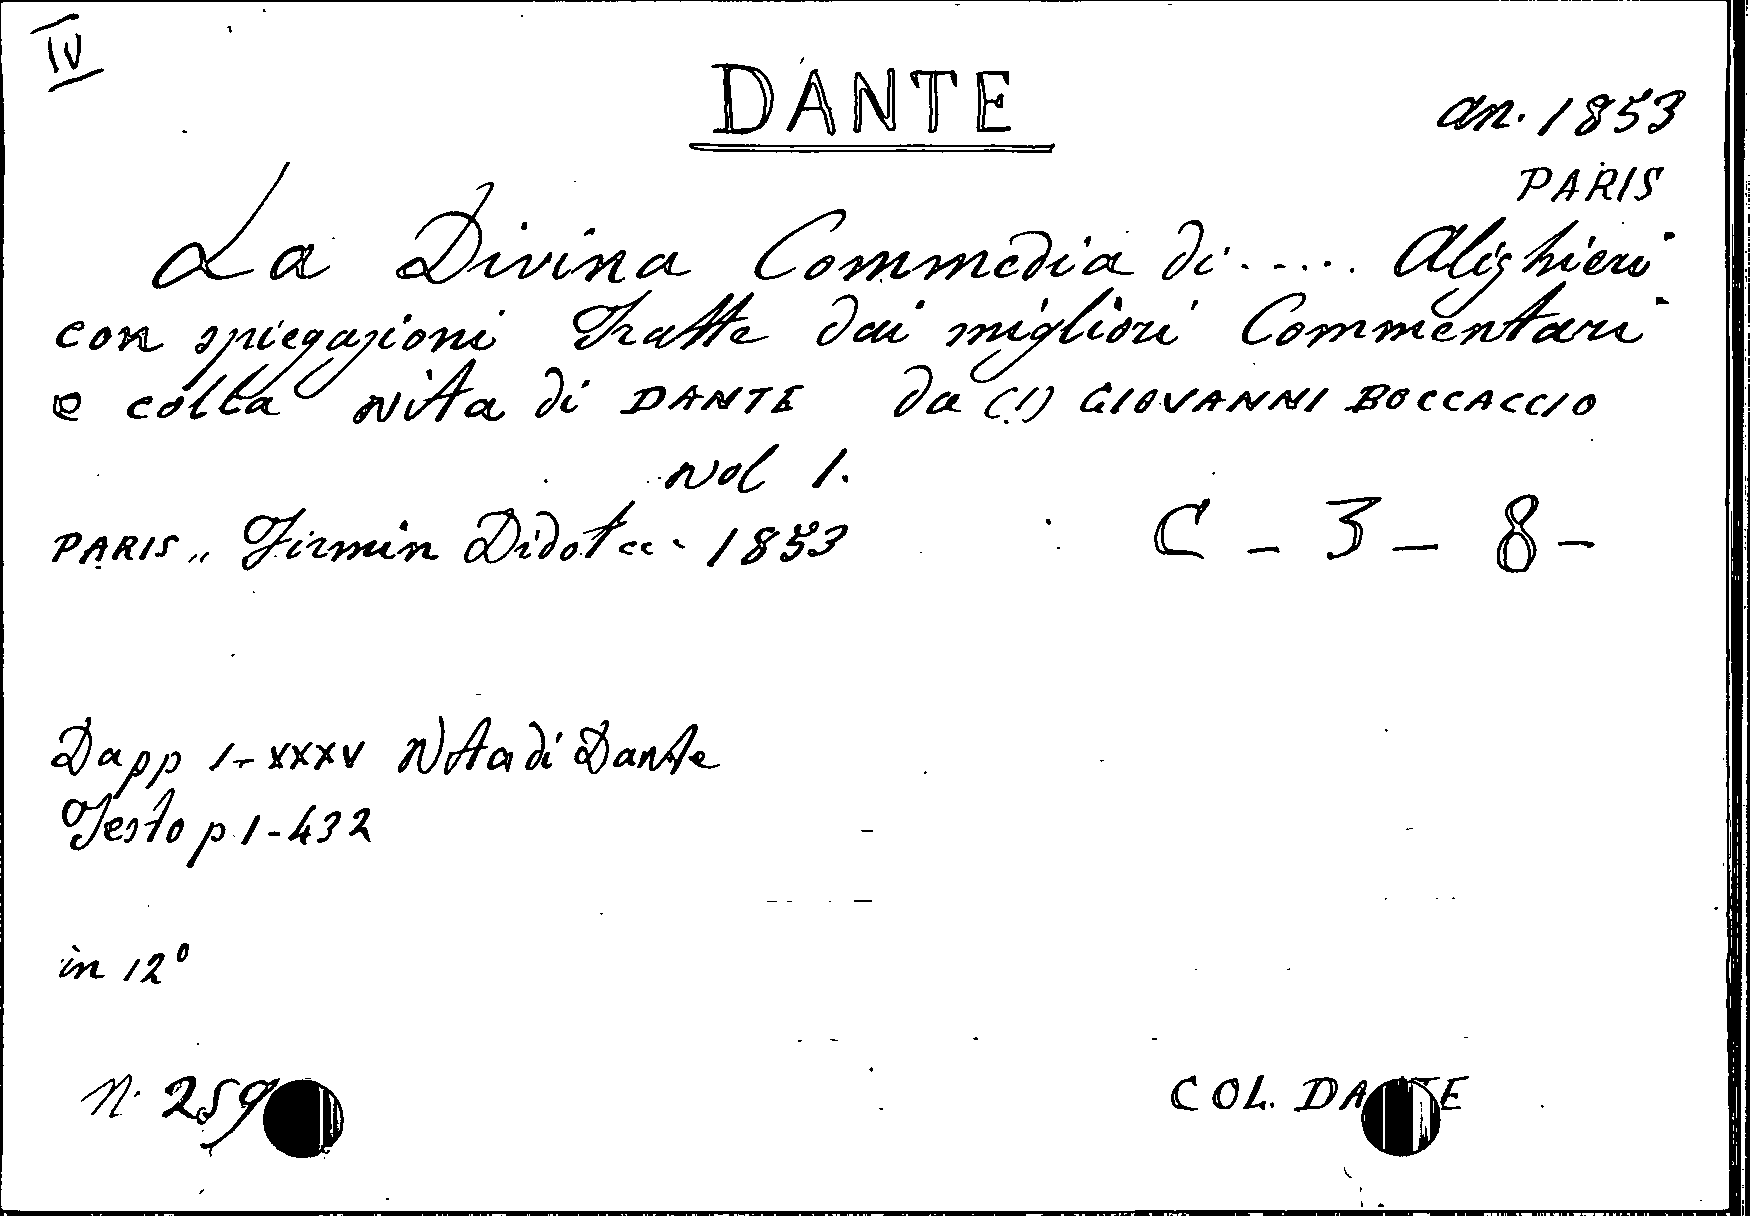 IV
DANTE
an. 1853
PARIS
La Divina Commedia di ..... Alighieri
con spiegazioni tratte dai migliori Commentari
e colla vita di DANTE da (1) GIOVANNI BOCCACCIO
vol 1.
PARIS „ Firmin Didot 1853
C - 3 - 8 -
Da pp 1-XXXV Vita di Dante
Testo p 1-432
in 12°
N. 259
COL. DANTE